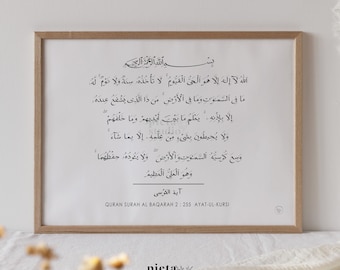 بسم الله الرحمن الرحيم
الله لا إله إلا هو الحي القيوم لا تأخذه سنة ولا نوم له
ما في السموت وما في الأرض من ذا الذي يشفع عنده
إلا بإذنه يعلم ما بين أيديهم وما خلفهم
ولا يحيطون بشيء من علمه إلا بما شاء
وسع كرسيه السموت والأرض ولا يئوده حفظهما
وهو العلي العظيم
آية الكرسي
QURAN SURAH AL BAQARAH 2 : 255, AYAT-UL-KURSI